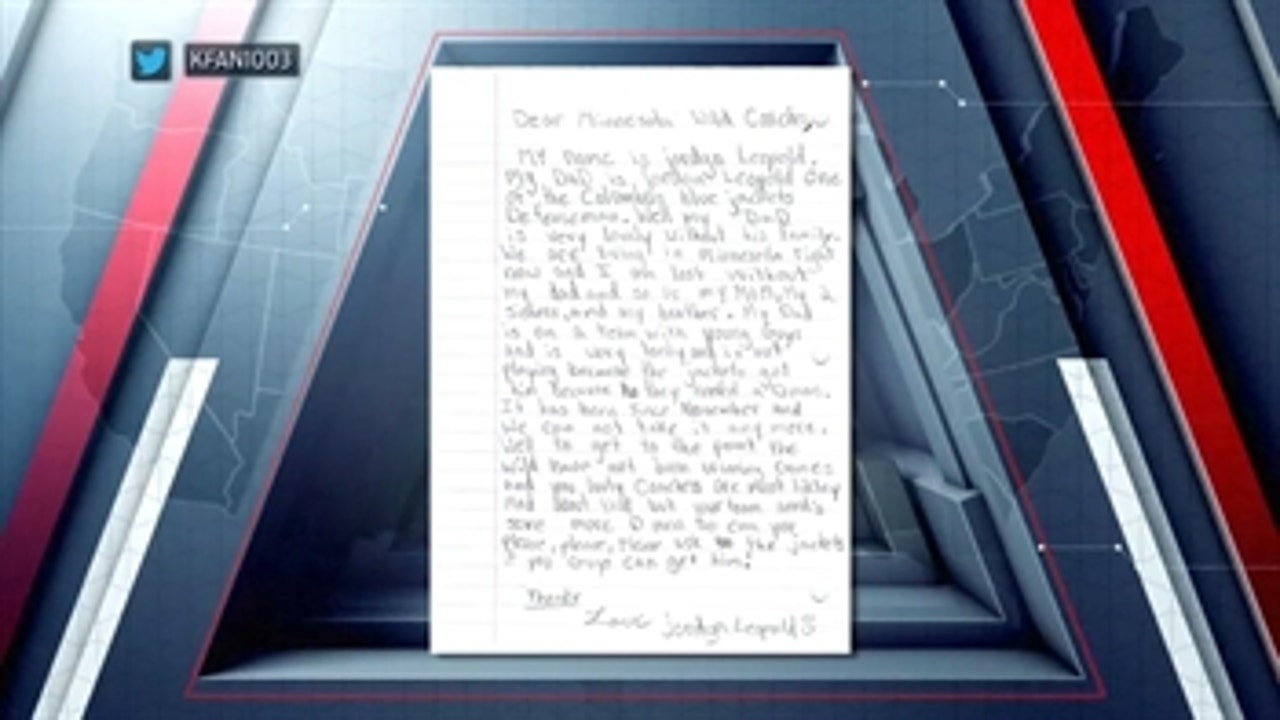 KFAN1003
Dear Minnesota Wild Coaches,
My name is jordyn Leopold.
My DaD is jordan Leopold One
of the Columbus blue jackets
Defenseman. Well my DaD
is very lonly without his family.
We are living in Minnesota right
now and I am lost without
my dad and so is my MoM, My 2
sisters, and my brother. My Dad
is on a team with young Guys
and is very lonly and is not
playing because the jackets got
him because they needed a Dman.
It has being since November and
We can not take it any more.
Well to get to the point the
Wild have not been winning Games
and you Coaches are most likley
Mad about it but your team needs
some more D men so can you
Please, please, please ask the jackets
if you Guys can get him.
Thanks
Love jordyn Leopold